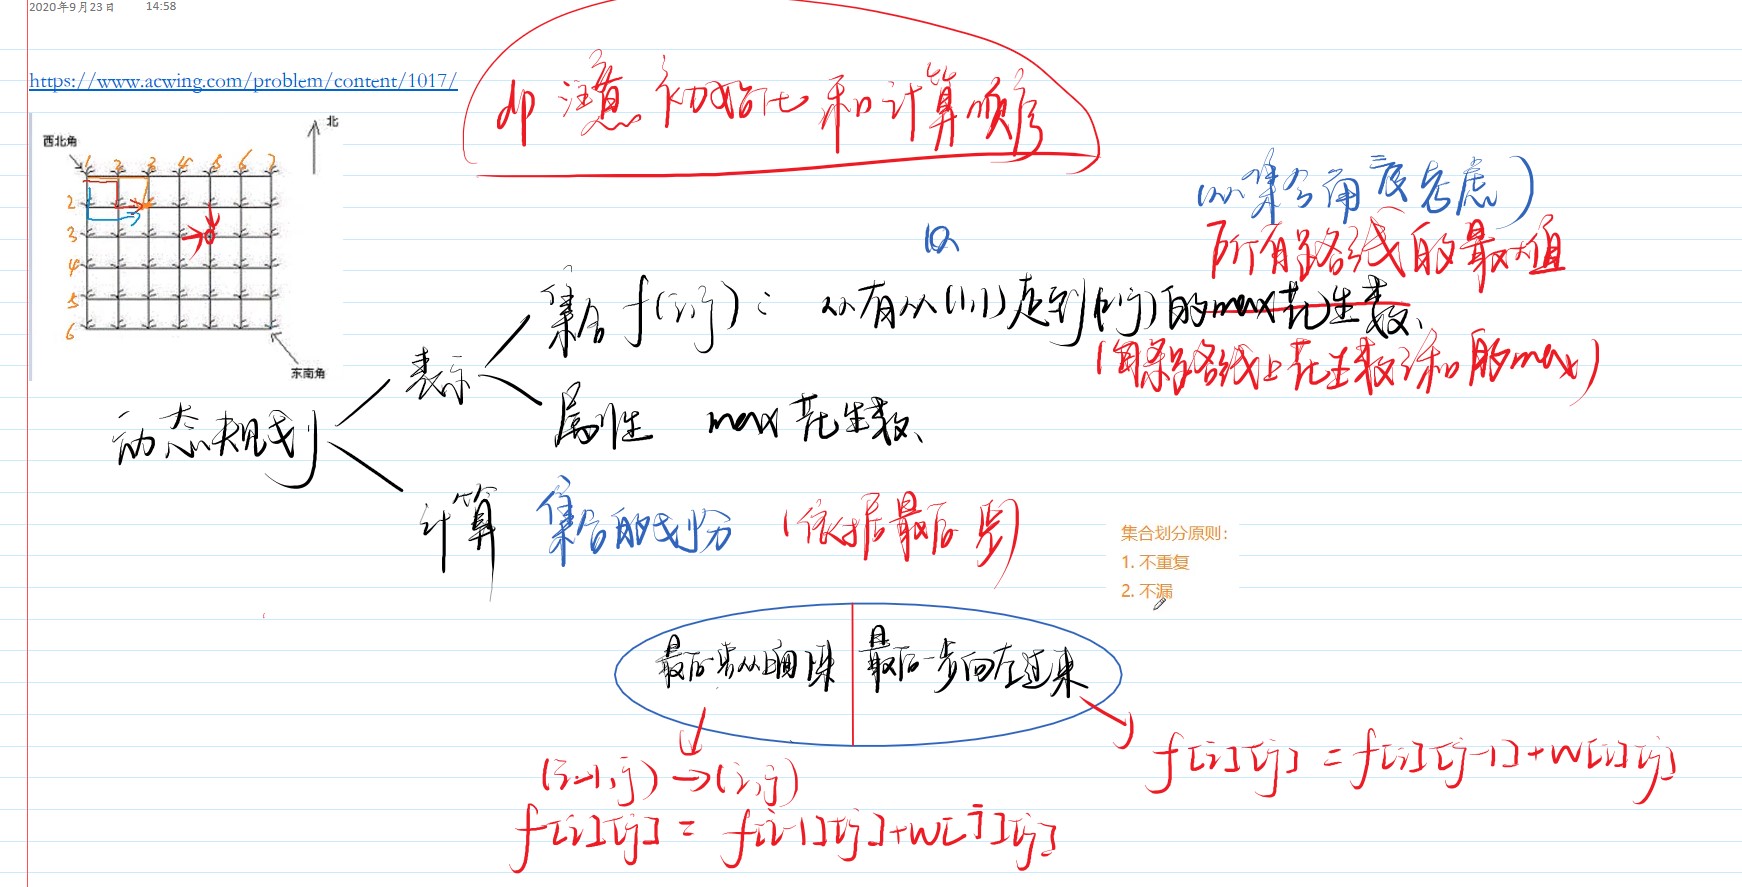 2020年9月23日 14:58
https://www.acwing.com/problem/content/1017/
dp 注意 初始化 和 计算顺序
北
西北角
1 2 3 4 5 6 7
2
3
4
5
6
东南角
(从集合角度考虑)
所有路线的最大值
从
集合 f(i,j): 从有从(1,1)走到(i,j)的max花生数
(每条路线上花生数之和的max)
表示
属性 max花生数
动态规划
计算 集合的划分 (依据最后一步)
集合划分原则:
1. 不重复
2. 不漏
最后一步从上面下来 最后一步向左过来
(i-1,j) → (i,j)
f[i][j] = f[i][j-1]+w[i][j]
f[i][j] = f[i-1][j]+w[i][j]